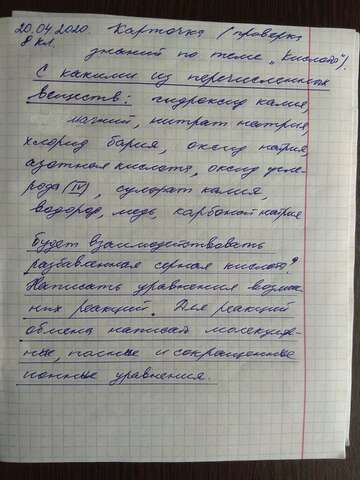 20.04.2020. Карточка (проверка
8 кл.
знаний по теме „Кислоты").
С какими из перечисленных
веществ: гидроксид калия,
магний, нитрат натрия,
хлорид бария, оксид натрия,
азотная кислота, оксид угле-
рода (IV), сульфат калия,
водород, медь, карбонат натрия
Будет взаимодействовать
разбавленная серная кислота?
Написать уравнения возмож-
ных реакций. Для реакций
обмена написать молекуляр-
ные, полные и сокращенные
ионные уравнения.